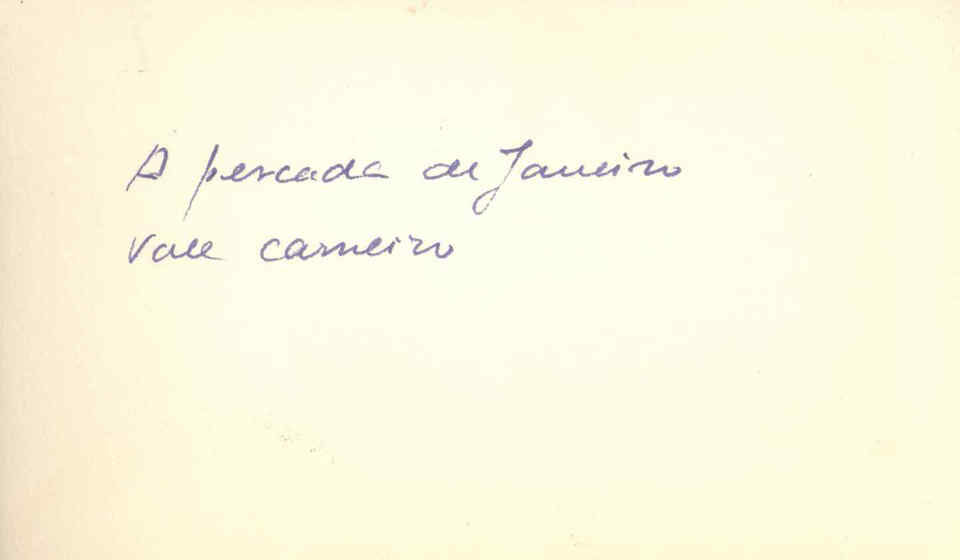 A pescada de Janeiro
vale carneiro